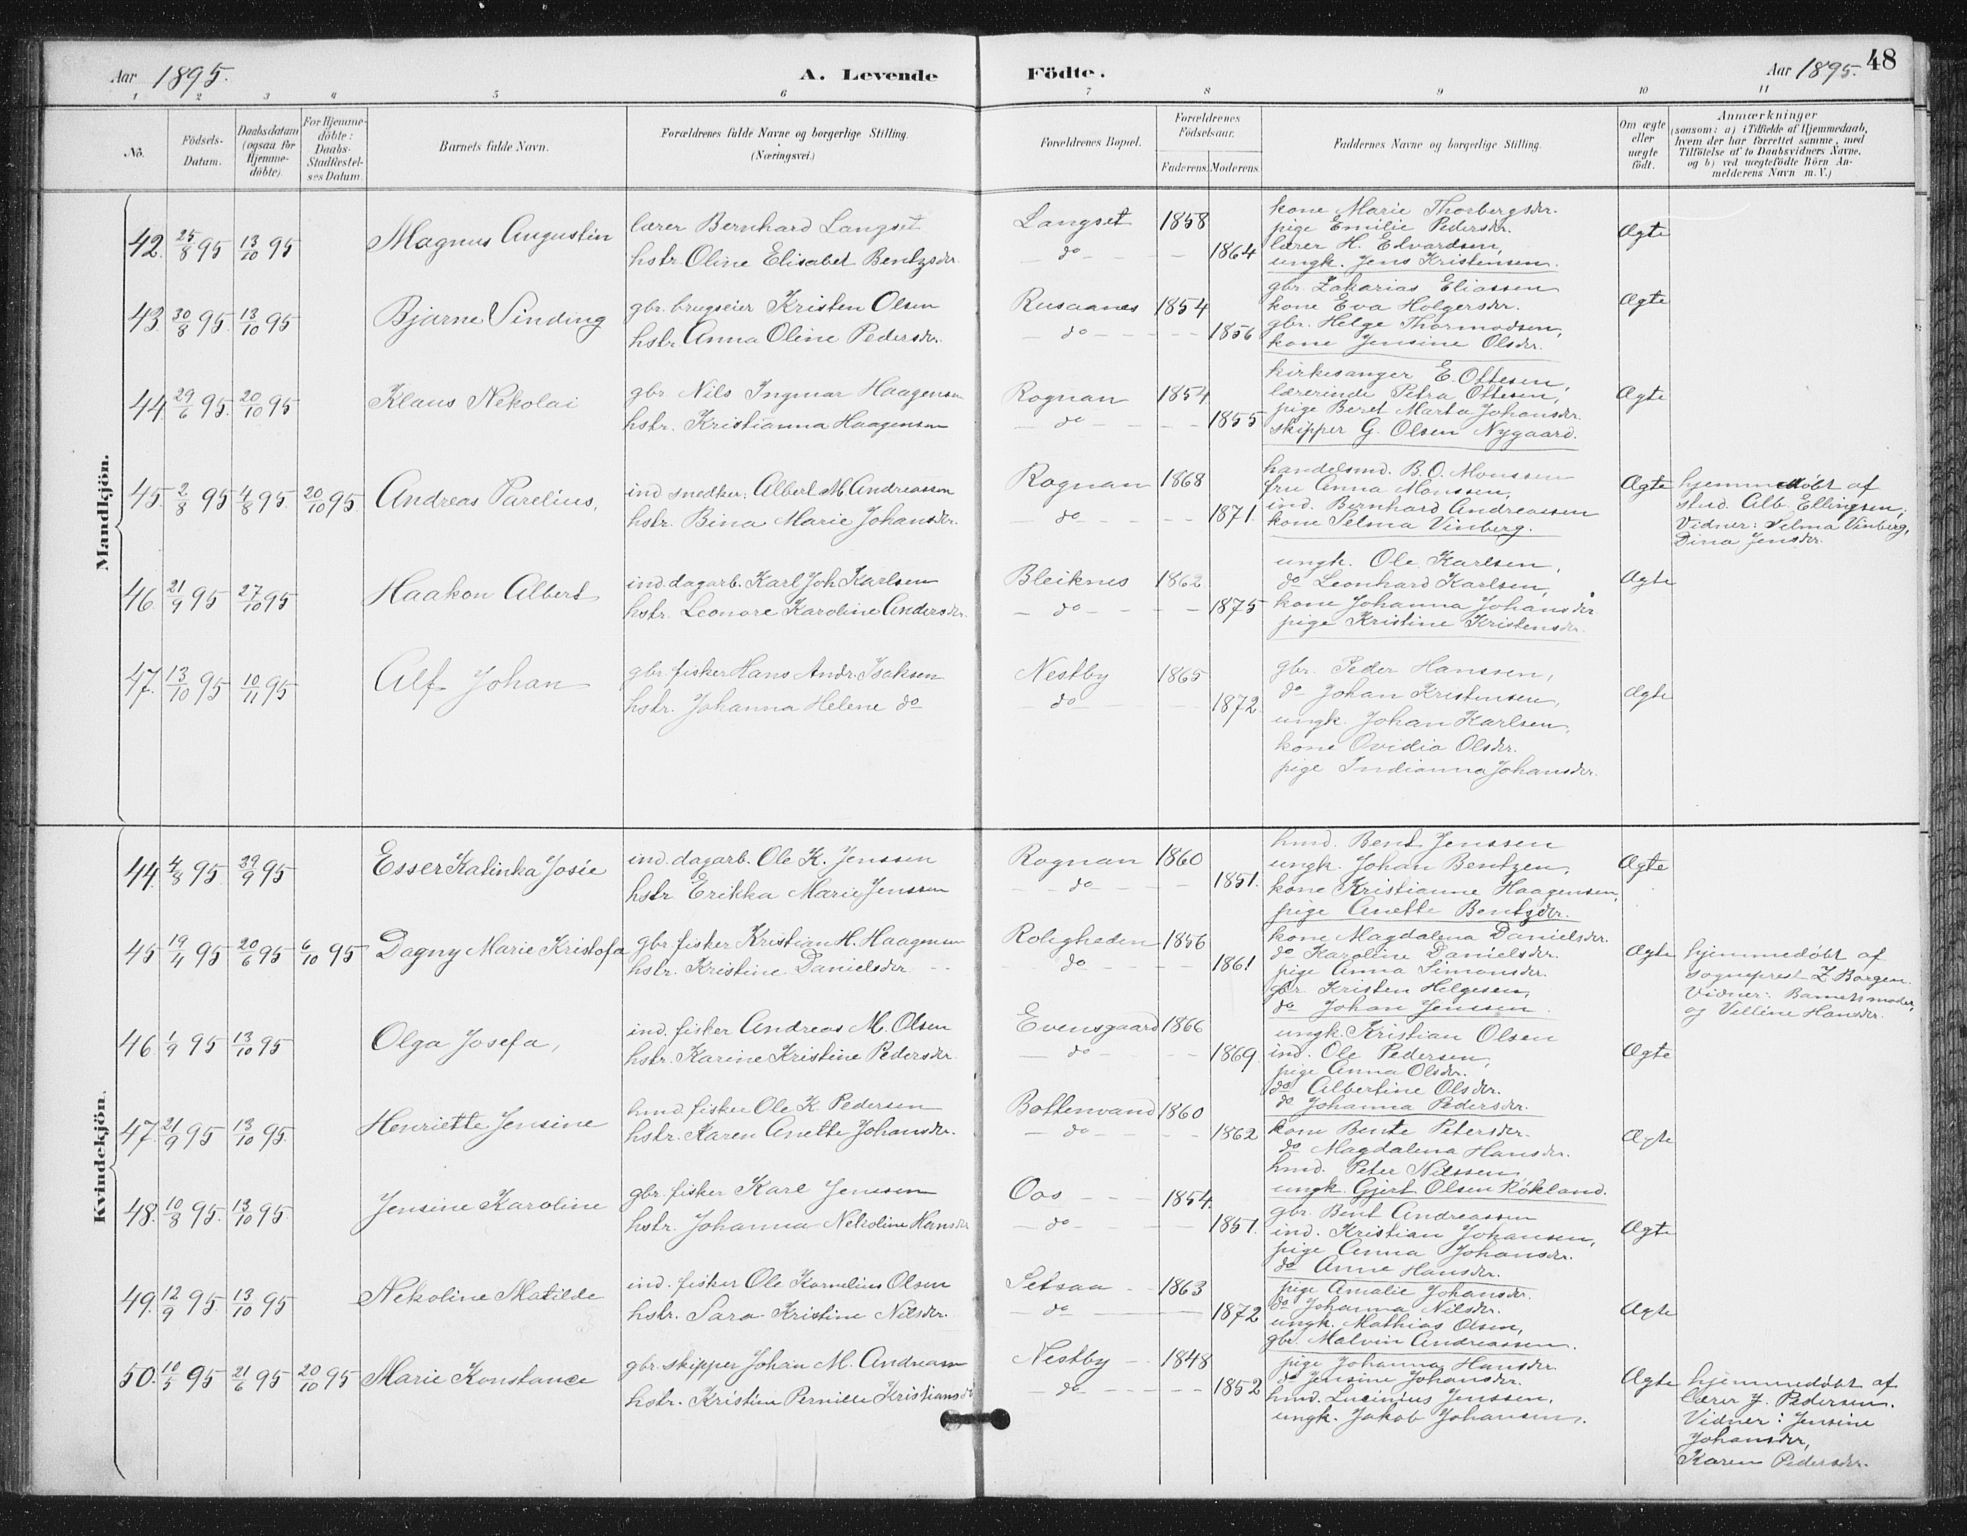 Aar 1895. A. Levende Födte. Aar 1895. 48
1 2 3 4 5 6 7 8 9 10 11
No. Födsels-Datum. Daabsdatum (ogsaa for Hjemmedöbte). For Hjemmedöbte: Daabs-Stadfæstelses Datum. Barnets fulde Navn. Forældrenes fulde Navne og borgerlige Stilling. (Næringsvei.) Forældrenes Bopæl. Forældrenes Födselsaar. Faderens. Moderens. Faddernes Navne og borgerlige Stilling. Om ægte eller uægte födt. Anmærkninger (saasom: a) i Tilfælde af Hjemmedaab, hvem der har forrettet samme, med Tilföielse af to Daabsvidners Navne, og b) ved uegtefödte Börn Anmelderens Navn m. V.)
Mandkjön.
42. 25/8 95 13/10 95 Magnus Augustin
lærer Bernhard Langset
hstr. Oline Elisabet Bentzsdr.
Langset 1858
do 1864
kone Marie Thorbergsdr.
pige Emilie Pedersdr.
lærer H. Edvardsen,
ungk. Jens Kristensen.
Ægte
43. 30/8 95. 13/10 95 Bjarne Sinding
gbr. brugseier Kristen Olsen
hstr. Anna Oline Pedersdr.
Rusaanes 1854
do 1856
gbr. Zakarias Eliassen
kone Eva Holgersdr.
gbr. Helge Thormodsen,
kone Jensine Olsdr.
Ægte
44 29/6 95. 20/10 95 Klaus Nekolai
gbr. Nils Ingmar Haagensen
hstr. Kristianna Haagensen
Rognan 1854
do 1855
kirkesanger E. Ottesen,
lærerinde Petra Ottesen,
pige Beret Marta Johansdr.
skipper G. Olsen Nygaard.
Ægte
45. 2/8 95 4/8 95. 20/10 95 Andreas Parelius,
ind. snedker: Albert M. Andreassen
hstr. Bina Marie Johansdr.
Rognan 1868
do 1871.
handelsmd. B. O. Monssen
fru Anna Monssen,
ind. Bernhard Andreassen
kone Selma Vinberg.
Ægte
hjemmedøbt af
stud. Alb. Ellingsen;
Vidner: Selma Vinberg,
Dina Jensdr.
46. 21/9 95 27/10 95 Haakon Albert
ind. dagarb. Karl Joh. Karlsen
hstr. Leonore Karoline Andersdr.
Bleiknes 1862
do 1875
ungk. Ole Karlsen,
do Leonhard Karlsen,
kone Johanna Johansdr
pige Kristine Kristensdr.
Ægte
47. 13/10 95 10/11 95 Alf Johan
gbr. fisker Hans Andr. Isaksen
hstr. Johanna Helene do
Nestby 1865
do 1872.
gbr. Peder Hanssen,
do Johan Kristensen,
ungk. Johan Karlsen,
kone Ovidia Olsdr.
pige Indianna Johansdr.
Ægte
Kvindekjön.
44. 4/8 95. 29/9 95 Esser Katinka Josie
ind. dagarb. Ole K. Jenssen
hstr. Erikka Marie Jenssen
Rognan 1860
do 1851.
hmd. Bent Jenssen
ungk. Johan Bentzen,
kone Kristianne Haagensen,
pige Anette Bentzdr.
Ægte
45 19/4 95 20/6 95 6/10 95 Dagny Marie Kristofa
gbr. fisker Kristian H. Haagensen
hstr. Kristine Danielsdr.
Roligheden 1856
do 1861
kone Magdalena Danielsdr.
do Karoline Danielsdr.
pige Anna Simonsdr.
gbr. Kristen Helgesen,
do Johan Jenssen
Ægte
hjemmedøbt af
sogneprest Z. Borgen.
Vidner: Barnets moder,
og Velline Hansdr.
46 1/9 95 13/10 95 Olga Josefa,
ind. fisker Andreas M. Olsen
hstr. Karine Kristine Pedersdr.
Evensgaard 1866
do 1869.
ungk. Kristian Olsen
ind. Ole Pedersen,
pige Anna Olsdr.
do Albertine Olsdr.
do Johanna Pedersdr.
Ægte
47. 21/9 95 13/10 95. Henriette Jensine
hmd. fisker Ole K. Pedersen
hstr. Karen Anette Johansdr.
Bottenvand 1860
do 1862
kone Bente Petersdr.
do Magdalena Hansdr.
hmd. Peter Nilssen
ungk. Gjert Olsen Røkland.
Ægte
48. 10/8 95. 13/10 95. Jensine Karoline
gbr. fisker Karl Jenssen
hstr. Johanna Nekoline Hansdr
Oas 1854
do 1851.
gbr. Bent Andreassen
ind. Kristian Johansen,
pige Anna Johansdr.
do Anne Hansdr.
Ægte
49. 12/9 95. 13/10 95 Nekoline Matilde
ind. fisker Ole Kornelius Olsen
hstr. Sara Kristine Nilsdr.
Setsaa 1863
do 1872
pige Amalie Johansdr.
do Johanna Nilsdr.
ungk. Mathias Olsen,
gbr. Malvin Andreassen.
Ægte
50. 10/5 95 21/6 95 20/10 95 Marie Konstance
gbr. skipper Johan M. Andreassen
hstr. Kristine Pernille Kristiansdr
Nestby 1848
do 1852
pige Johanna Hansdr.
do Jensine Johansdr.
hmd. Lucinius Jenssen,
ungk. Jakob Johansen.
Ægte
hjemmedøbt af
lærer J. Pedersen.
Vidner: Jensine
Johansdr,
Karen Pedersdr.